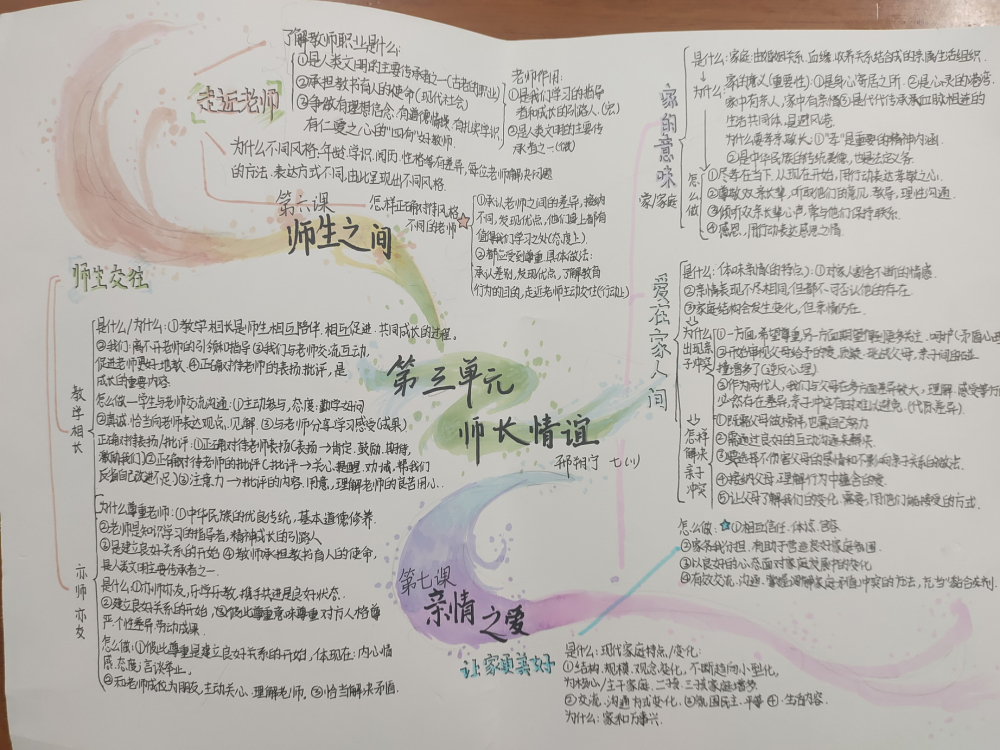 走近老师
了解教师职业是什么:
①是人类文明的主要传承者之一(古老的职业)
②承担教书育人的使命(现代社会)
③争做有理想信念、有道德情操、有扎实学识、
有仁爱之心的"四有"好教师.
老师作用:
①是我们学习的指导
者和成长的引路人.(宏)
②是人类文明的主要传
承者之一(微)
为什么不同风格:年龄、学识、阅历、性格等有差异,每位老师解决问题
的方法、表达方式不同,由此呈现出不同风格.
怎样正确对待风格
不同的老师
①承认老师之间的差异,接纳
不同,发现优点,他们身上都有
值得我们学习之处(态度上)
②都应受到尊重.具体做法:
承认差别,发现优点,了解教育
行为的目的,走近老师主动交往(行动上)
第六课
师生之间
师生交往
教学相长
是什么/为什么:①教学相长是师生相互陪伴、相互促进、共同成长的过程。
②我们离不开老师的引领和指导③我们与老师交流互动,
促进老师更好地教.④正确对待老师的表扬批评,是
成长的重要内容.
怎么做—学生与老师交流沟通:①主动参与,态度:勤学好问
②真诚、恰当向老师表达观点,见解.③与老师分享学习感受(成果)
正确对待表扬/批评:①正确对待老师表扬(表扬→肯定、鼓励、期待,
激励我们)②正确对待老师的批评(批评→关心、提醒、劝诫,帮我们
反省自己改进不足)③注意力→批评的内容、用意,理解老师的良苦用心.
亦师亦友
为什么尊重老师:①中华民族的优良传统,基本道德修养.
②老师是知识学习的指导者,精神成长的引路人
③是建立良好关系的开始④教师承担教书育人的使命,
是人类文明主要传承者之一.
是什么:①亦师亦友,乐学乐教,携手共进是良好状态.
②建立良好关系的开始,③彼此尊重意味尊重对方人格尊
严、个性差异、劳动成果.
怎么做:①彼此尊重是建立良好关系的开始,体现在:内心情
感、态度、言谈举止。
②和老师成为朋友,主动关心、理解老师.③恰当解决矛盾.
第三单元
师长情谊
七(1)
第七课
亲情之爱
家的意味
家/家庭
是什么:家庭由婚姻关系、血缘、收养关系结合成的亲属生活组织.
为什么:
家的意义(重要性):①是身心寄居之所.②是心灵的港湾.
家中有亲人,家中有亲情③是代代传承、血脉相连的
生命共同体,是避风港.
为什么要孝亲敬长:①"孝"是重要的精神内涵.
②是中华民族的传统美德,也是法定义务.
怎么做
①尽孝在当下,从现在开始,用行动表达孝敬之心.
②尊敬双亲长辈,听取他们的意见、教导,理性沟通.
③倾听双亲长辈心声,常与他们保持联系.
④感恩,用行动表达感恩之情.
爱在家人间
是什么:体味亲情(的特点):①对家人割舍不断的情感.
②亲情表现不尽相同,但都不可否认他的存在.
③家庭结构会发生变化,但亲情仍在.
为什么出现亲子冲突
①一方面,希望尊重,另一方面期望
②开始审视父母给予的爱,
撞增多了(逆反心理).
③作为两代人,我们与父母在多方面差异较大,理解、感受等方
必然存在差异,亲子冲突往往难以避免.(代际差异).
怎样解决亲子冲突
①既需父母做榜样,也需自己努力
②需通过良好的互动沟通来解决.
③要选择不伤害父母的感情和不影响亲子关系的做法.
④接纳父母,理解行为中蕴含的爱.
⑤让父母了解我们的变化、需要,用他们能接受的方式.
让家更美好
怎么做:①相互信任、体谅、包容
②家务我分担,有助于营造良好家庭氛围.
③以良好的心态面对家庭发展的变化
④有效交流、沟通,掌握调解家庭矛盾冲突的方法,充当"黏合各剂.
是什么:现代家庭特点/变化:
①结构、规模、观念变化,不断趋向小型化,
为核心/主干家庭.二孩、三孩家庭增多
②交流、沟通方式变化.③氛围民主、平等 ④.生活内容.
为什么:家和万事兴.